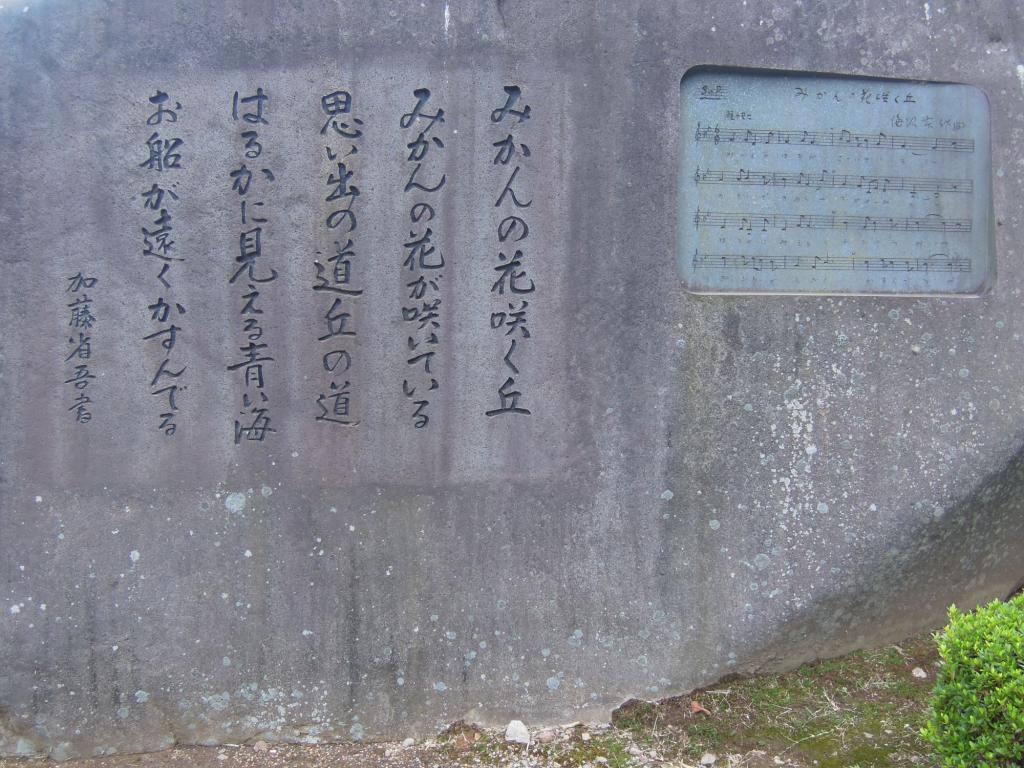 みかんの花咲く丘
みかんの花が咲いている
思い出の道丘の道
はるかに見える青い海
お船が遠くかすんでる
加藤省吾書
みかんの花咲く丘